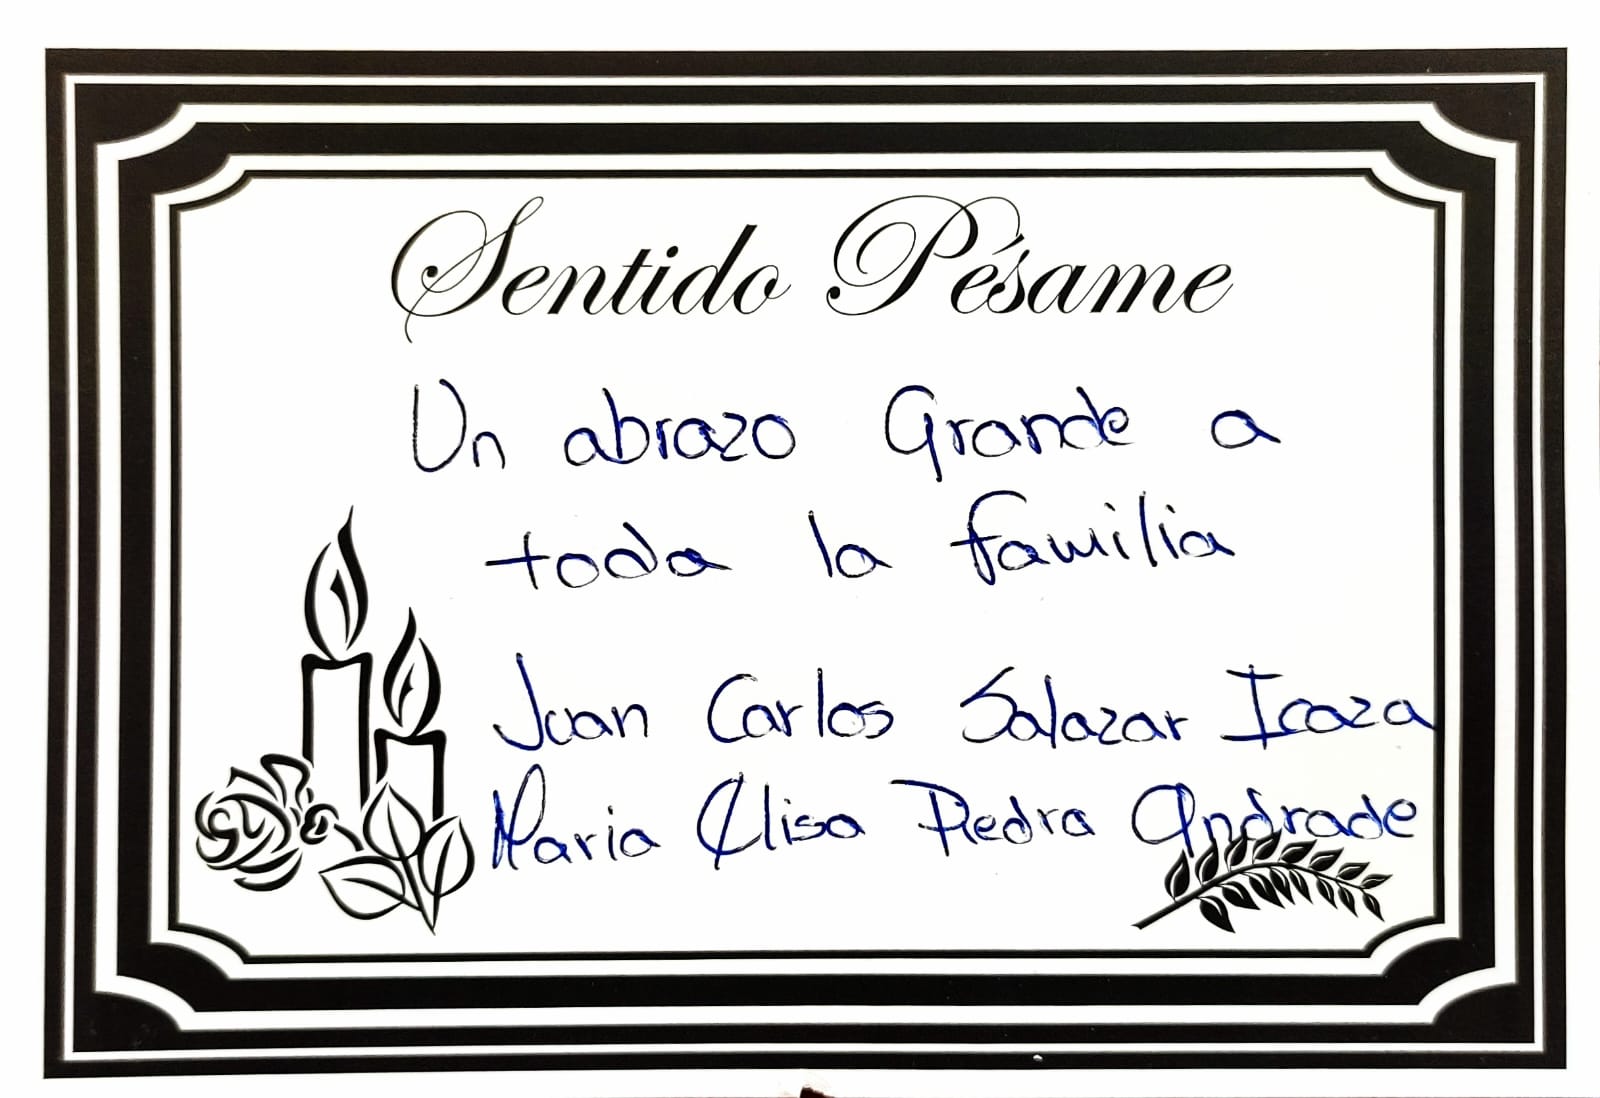 Sentido Pésame
Un abrazo Grande a
toda la familia
Juan Carlos Salazar Icaza
Maria Elisa Piedra Andrade